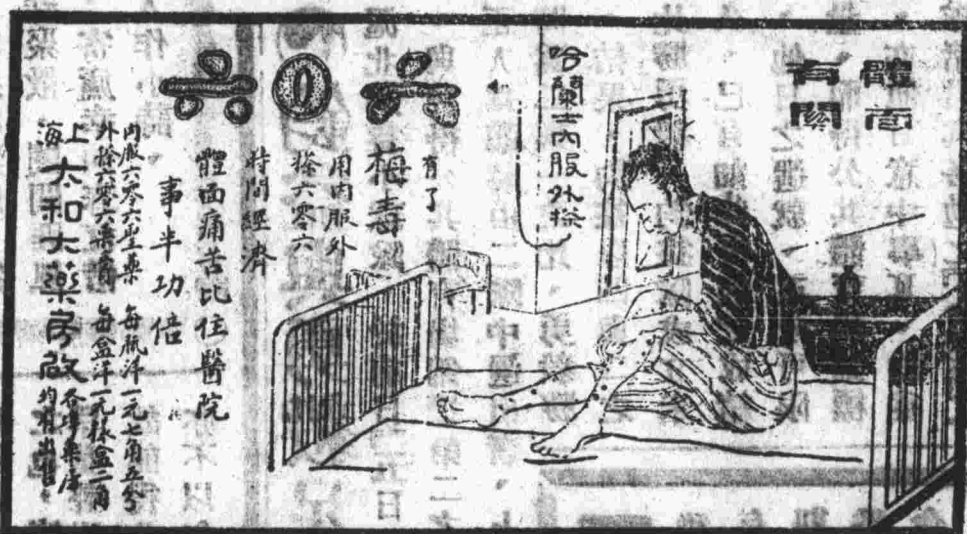 體面
有關
哈蘭士內服外搽
六〇六
有了
梅毒
用內服外
搽六零六
時間經濟
體面痛苦比住醫院
事半功倍
內服六零六聖藥 每瓶洋一元七角五分
外搽六零六藥膏 每盒洋一元樣盒二角
上海太和大藥房啟
各埠藥房
均有出售